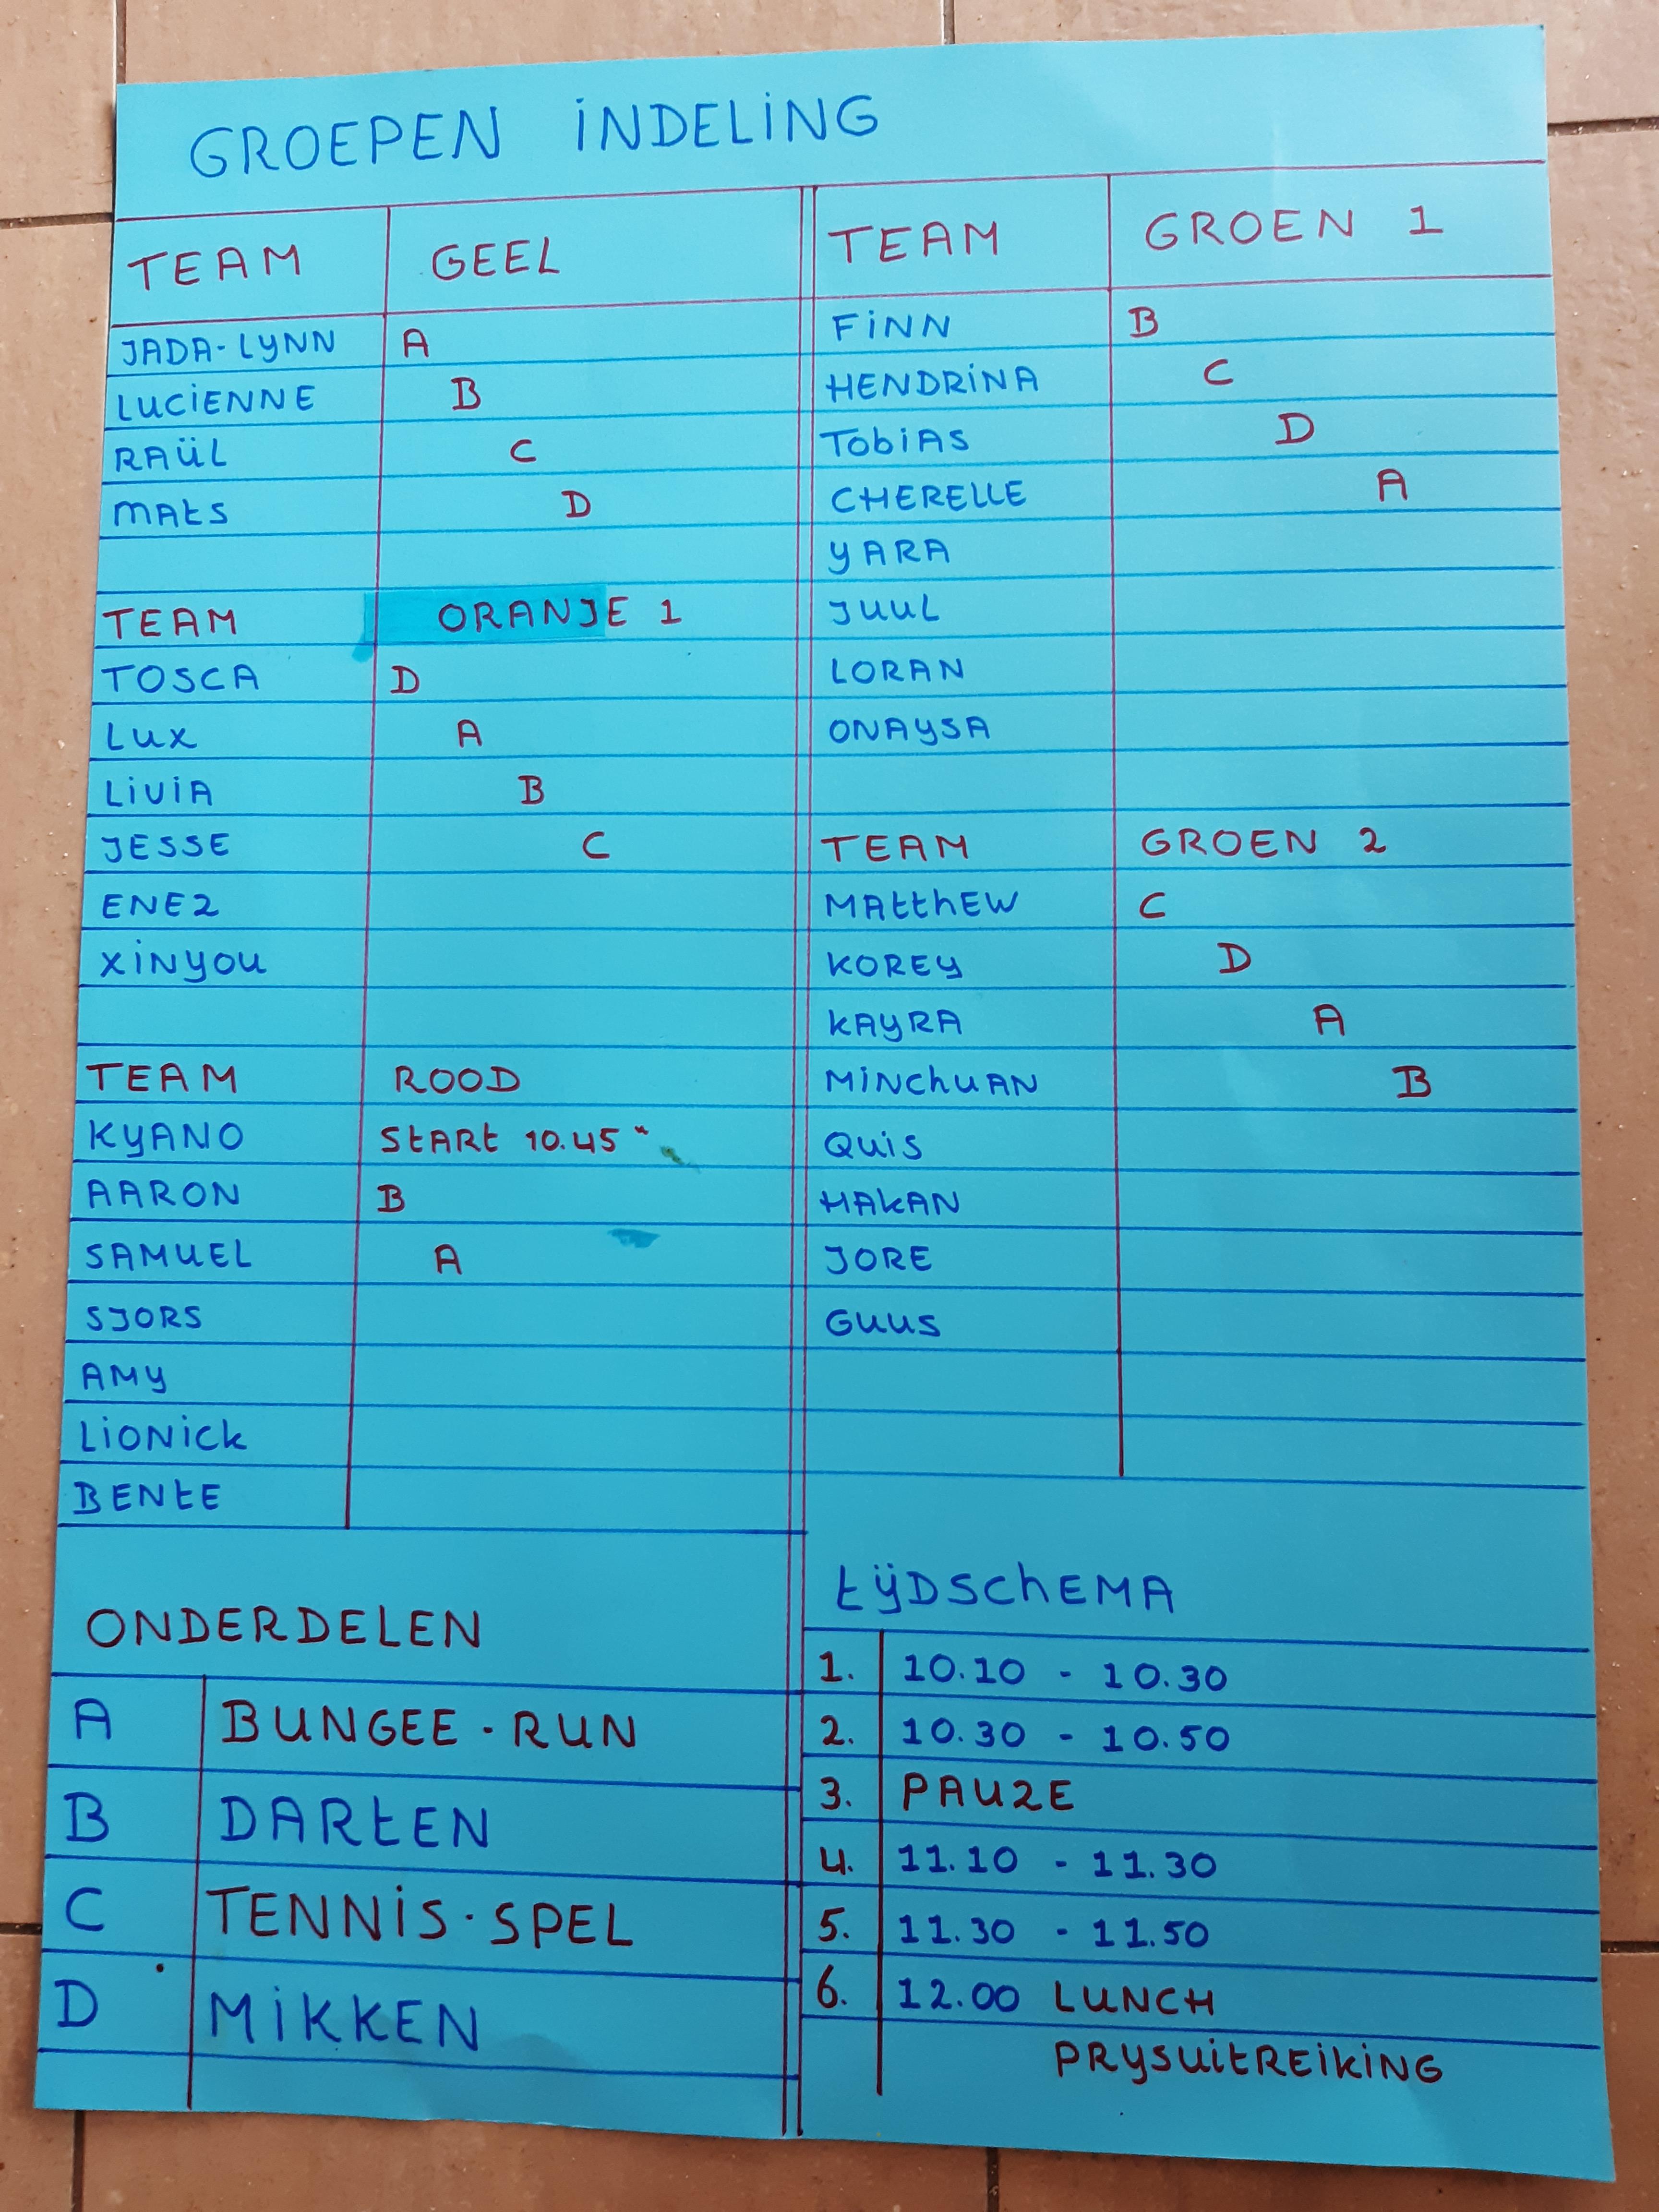 GROEPEN INDELING
TEAM GEEL
JADA-LYNN A
LUCIENNE B
RAÜL C
MATS D
TEAM ORANJE 1
TOSCA D
LUX A
LIVIA B
JESSE C
ENEZ
XINYOU
TEAM ROOD
KYANO START 10.45 "
AARON B
SAMUEL A
SJORS
AMY
LIONICK
BENTE
TEAM GROEN 1
FINN B
HENDRINA C
TOBIAS D
CHERELLE A
YARA
JUUL
LORAN
ONAYSA
TEAM GROEN 2
MATTHEW C
KOREY D
KAYRA A
MINCHUAN B
QUIS
HAKAN
JORE
GUUS
ONDERDELEN
A BUNGEE-RUN
B DARTEN
C TENNIS-SPEL
D MIKKEN
TIJDSCHEMA
1. 10.10 - 10.30
2. 10.30 - 10.50
3. PAUZE
4. 11.10 - 11.30
5. 11.30 - 11.50
6. 12.00 LUNCH
PRYSUITREIKING